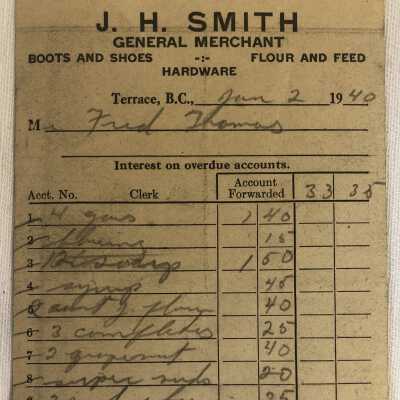 J. H. SMITH
GENERAL MERCHANT
BOOTS AND SHOES -:- FLOUR AND FEED
HARDWARE
Terrace, B.C., Jan 2 1940
M Fred Thomas
Interest on overdue accounts.
Acct. No. Clerk Account Forwarded 33 35
1 4 gas 1 40
2 15
3 1 50
4 syrup 45
5 aunt J. flour 40
6 3 25
7 2 grapenut 40
8 20
25